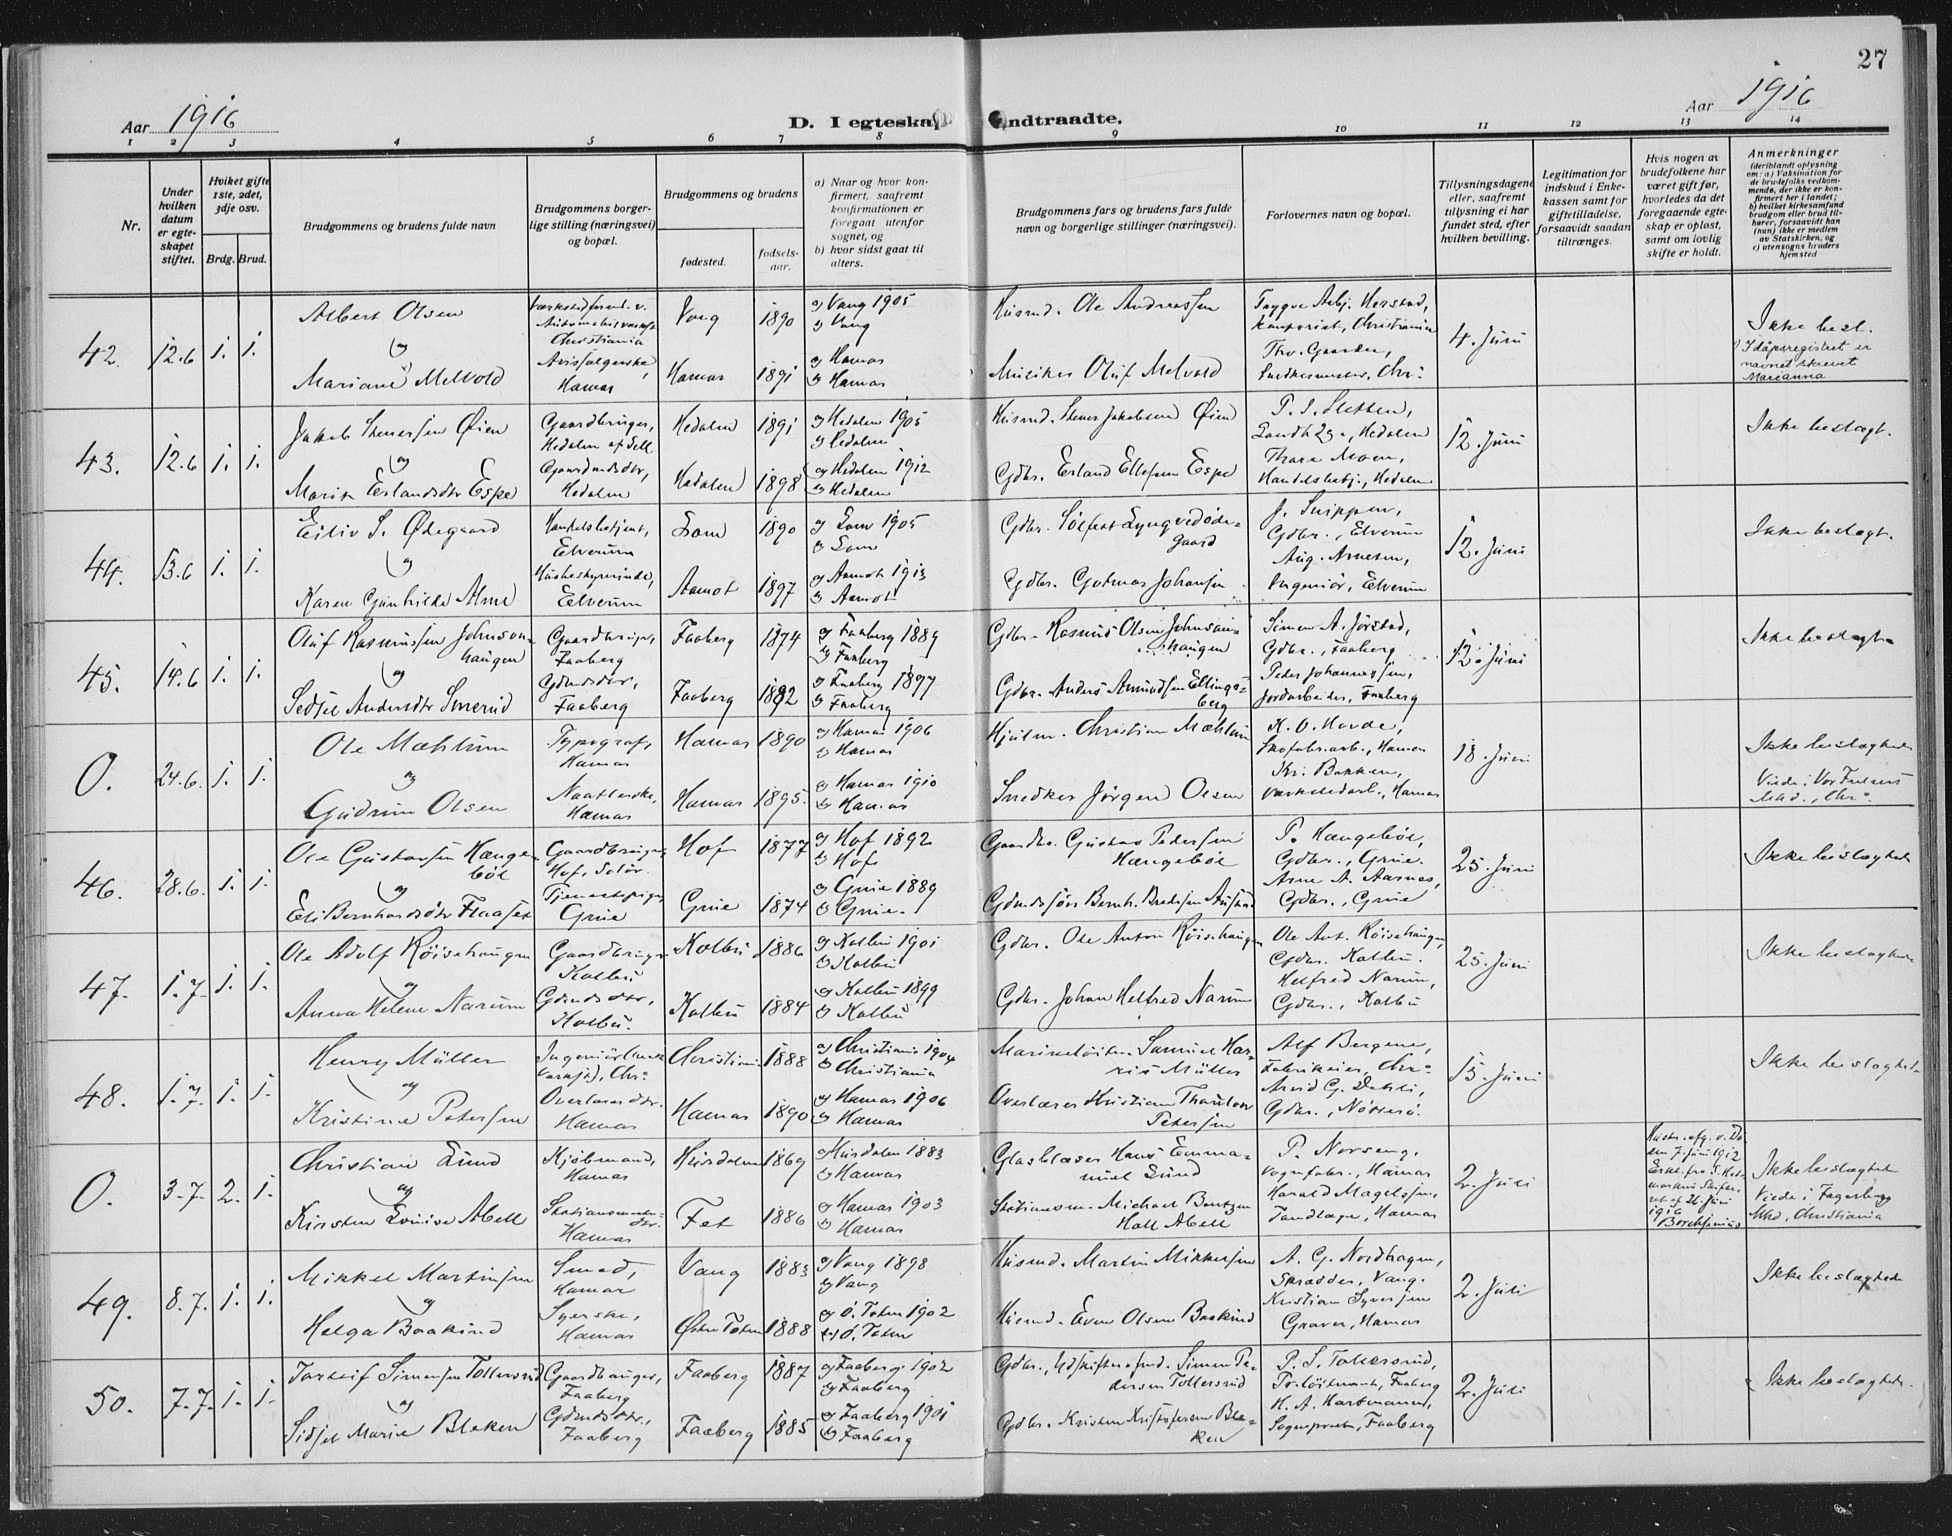 27
Aar 1916
D. I egteska
ndtraadte.
Aar 1916
1 2 3 4 5 6 7 8 9 10 11 12 13 14
Nr.
Under hvilken datum er egteskapet stiftet.
Hvilket gifte 1ste, 2det, 3dje osv.
Brdg. Brud.
Brudgommens og brudens fulde navn
Brudgommens borgerlige stilling (næringsvei) og bopæl.
Brudgommens og brudens
fødested.
fødselsaar.
a) Naar og hvor konfirmert, saafremt konfirmationen er foregaat utenfor sognet, og
b) hvor sidst gaat til alters.
Brudgommens fars og brudens fars fulde navn og borgerlige stillinger (næringsvei).
Forlovernes navn og bopæl.
Tillysningsdagene eller, saafremt tillysning ei har fundet sted, efter hvilken bevilling.
Legitimation for indskud i Enkekassen samt for giftetilladelse, forsaavidt saadan tiltrænges.
Hvis nogen av brudefolkene har været gift før, hvorledes da det foregaaende egteskap er opløst, samt om lovlig skifte er holdt.
Anmerkninger
(deriblandt oplysning om: a) Vaksination for de brudefolks vedkommende, der ikke er konfirmert her i landet; b) hvilket kirkesamfund brudgom eller brud tilhører, forsaavidt han (hun) ikke er medlem av Statskirken, og c) utensogns bruders hjemsted
42. 12.6 1. 1. Albert Olsen Christiania Vang 1890 a) Vang 1905 b) Vang Husmd. Ole Andreassen Trygve Asbj. Herstad, Kontorist, Christiania 4. Juni Ikke besl.
og Mariane Melvold Hamar Hamar 1891 a) Hamar b) Hamar Musiker Oluf Melvold Thv. Gaarder, Snedkermester, Chr.a I dåpsregistret er navnet skrevet Marianna.
43. 12.6 1. 1. Jakob Stenersen Øien Gaardbruger, Hedalen Hedalen 1891 a) Hedalen 1905 b) Hedalen Husmd. Stener Jakobsen Øien P. I. Sletten, Hedalen 12. Juni Ikke beslægt.
og Marit Erlandsdtr Espe Gaardmdsdtr, Hedalen Hedalen 1898 a) Hedalen 1912 b) Hedalen Gdbr. Erland Ellefsen Espe Moen, Handelsbetj., Hedalen
44. 13.6 1. 1. Eiliv S. Ødegaard Handelsbetjent, Elverum Lom 1890 a) Lom 1905 b) Lom Gdbr. Sølfest Syngvedødegaard J. Snippen, Gdbr., Elverum 12. Juni Ikke beslægt.
og Karen Gunhilde Alme Husbestyrerinde, Elverum Aamot 1897 a) Aamot 1913 b) Aamot Gdbr. Gotmar Johansen Aug. Arnesen, Ingeniør, Elverum
45. 14.6 1. 1. Oluf Rasmussen Johnsonhaugen Gaardbruger, Faaberg Faaberg 1874 a) Faaberg 1889 b) Faaberg Gdbr. Rasmus Olsen Johnsonhaugen Simen A. Jørstad, Gdbr., Faaberg 12. Juni Ikke beslægtet
og Sedsel Andersdtr Smerud Gdmdsdtr, Faaberg Faaberg 1882 a) Faaberg 1897 b) Faaberg Gdbr. Anders Amundsen Ellingsberg Peder Johannessen, Jordarbeider, Faaberg
0. 24.6. 1. 1. Ole Mæhlum Typograf, Hamar Hamar 1890 a) Hamar 1906 b) Hamar Hjulm. Christian Mæhlum K. O. Hovde, Skofabr.arb., Hamar 18. Juni Ikke beslægtede
og Gudrun Olsen Hamar Hamar 1895. a) Hamar 1910 b) Hamar Snedker Jørgen Olsen Kr. Bakken, Værkstedarb., Hamar Viede i Vor Frelsers Mhd., Chr.a
46. 28.6. 1. 1. Ole Gustavsen Hængebøl Gaardbruger, Hof, Solør Hof 1877 a) Hof 1892 b) Hof Gaardbr. Gustav Pedersen Hængebøl P. Hængebøl, Gdbr., Grue. 25. Juni Ikke beslægtede
og Eli Bernhardsdtr Flaaset Tjenestepige, Grue Grue 1874 a) Grue 1889 b) Grue. Bernh. Bredesen Arne A. Aarnes, Gdbr., Grue
47. 1.7. 1. 1. Ole Adolf Røisehaugen Gaardbruger Kolbu Kolbu 1886 a) Kolbu 1901 b) Kolbu Gdbr. Ole Anton Røisehaugen Ole Ant. Røisehaugen, Gdbr. Kolbu. 25. Juni Ikke beslægtede
og Anna Helene Narum Gdmdsdtr, Kolbu. Kolbu 1884 a) Kolbu 1899 b) Kolbu Gdbr. Johan Helfred Narum Helfred Narum, Gdbr., Kolbu
48. 1.7. 1. 1. Henry Müller Chr.a Christiania 1888 a) Christiania 1904 b) Christiania Marineløitn. Samuel Harris Müller Alf Bergene, Fabrikeier, Chr.a 15. Juni Ikke beslægtede
og Kristine Petersen Overlærerdtr. Hamar Hamar 1890 a) Hamar 1906 b) Hamar Overlærer Kristian Thaulow Petersen Arvid G. Dahli, Gdbr., Nøtterø.
0. 3.7. 2. 1. Christian Lund Kjøbmand, Hamar Hurdalen 1869 a) Hurdalen 1883 b) Hamar Glasblæser Hans Emmanuel Lund P. Norseng, Vognfabr., Hamar 2. Juli 7. Juni 1912 26. Juni 1916 Ikke beslægtede
og Kirsten Lovise Abell Stationsmesterdtr. Hamar Fet 1886 a) Hamar 1903 b) Hamar Stationsm. Michael Bentzen Holl Abell Harald Magelssen, Tandlæge, Hamar Viede i Fagerborg Mhd, Christiania
49. 8.7. 1. 1. Mikkel Martinsen Smed, Hamar Vang 1883 a) Vang 1898 b) Vang Husmd. Martin Mikkelsen A. G. Nordhagen, Skrædder, Vang. 2. Juli Ikke beslægtede
og Helga Baakind Syerske, Hamar Østre Toten 1888 a) Ø. Toten 1902 b) Ø. Toten Husmd. Even Olsen Baakind Kristian Syversen Graver, Hamar
50. 7.7. 1. 1. Torleif Simensen Tollersrud Gaardbruger, Faaberg Faaberg 1887 a) Faaberg 1902 b) Faaberg Gdbr., Simen Pedersen Tollersrud P. S. Tollersrud, Pr.løitnant, Faaberg 2. Juli Ikke beslægtede.
og Sidsel Marie Bleken Gdmdsdtr., Faaberg Faaberg 1885 a) Faaberg 1901 b) Faaberg Gdbr. Kristen Kristofersen Bleken K. A. Hartmann, Sogneprest, Faaberg